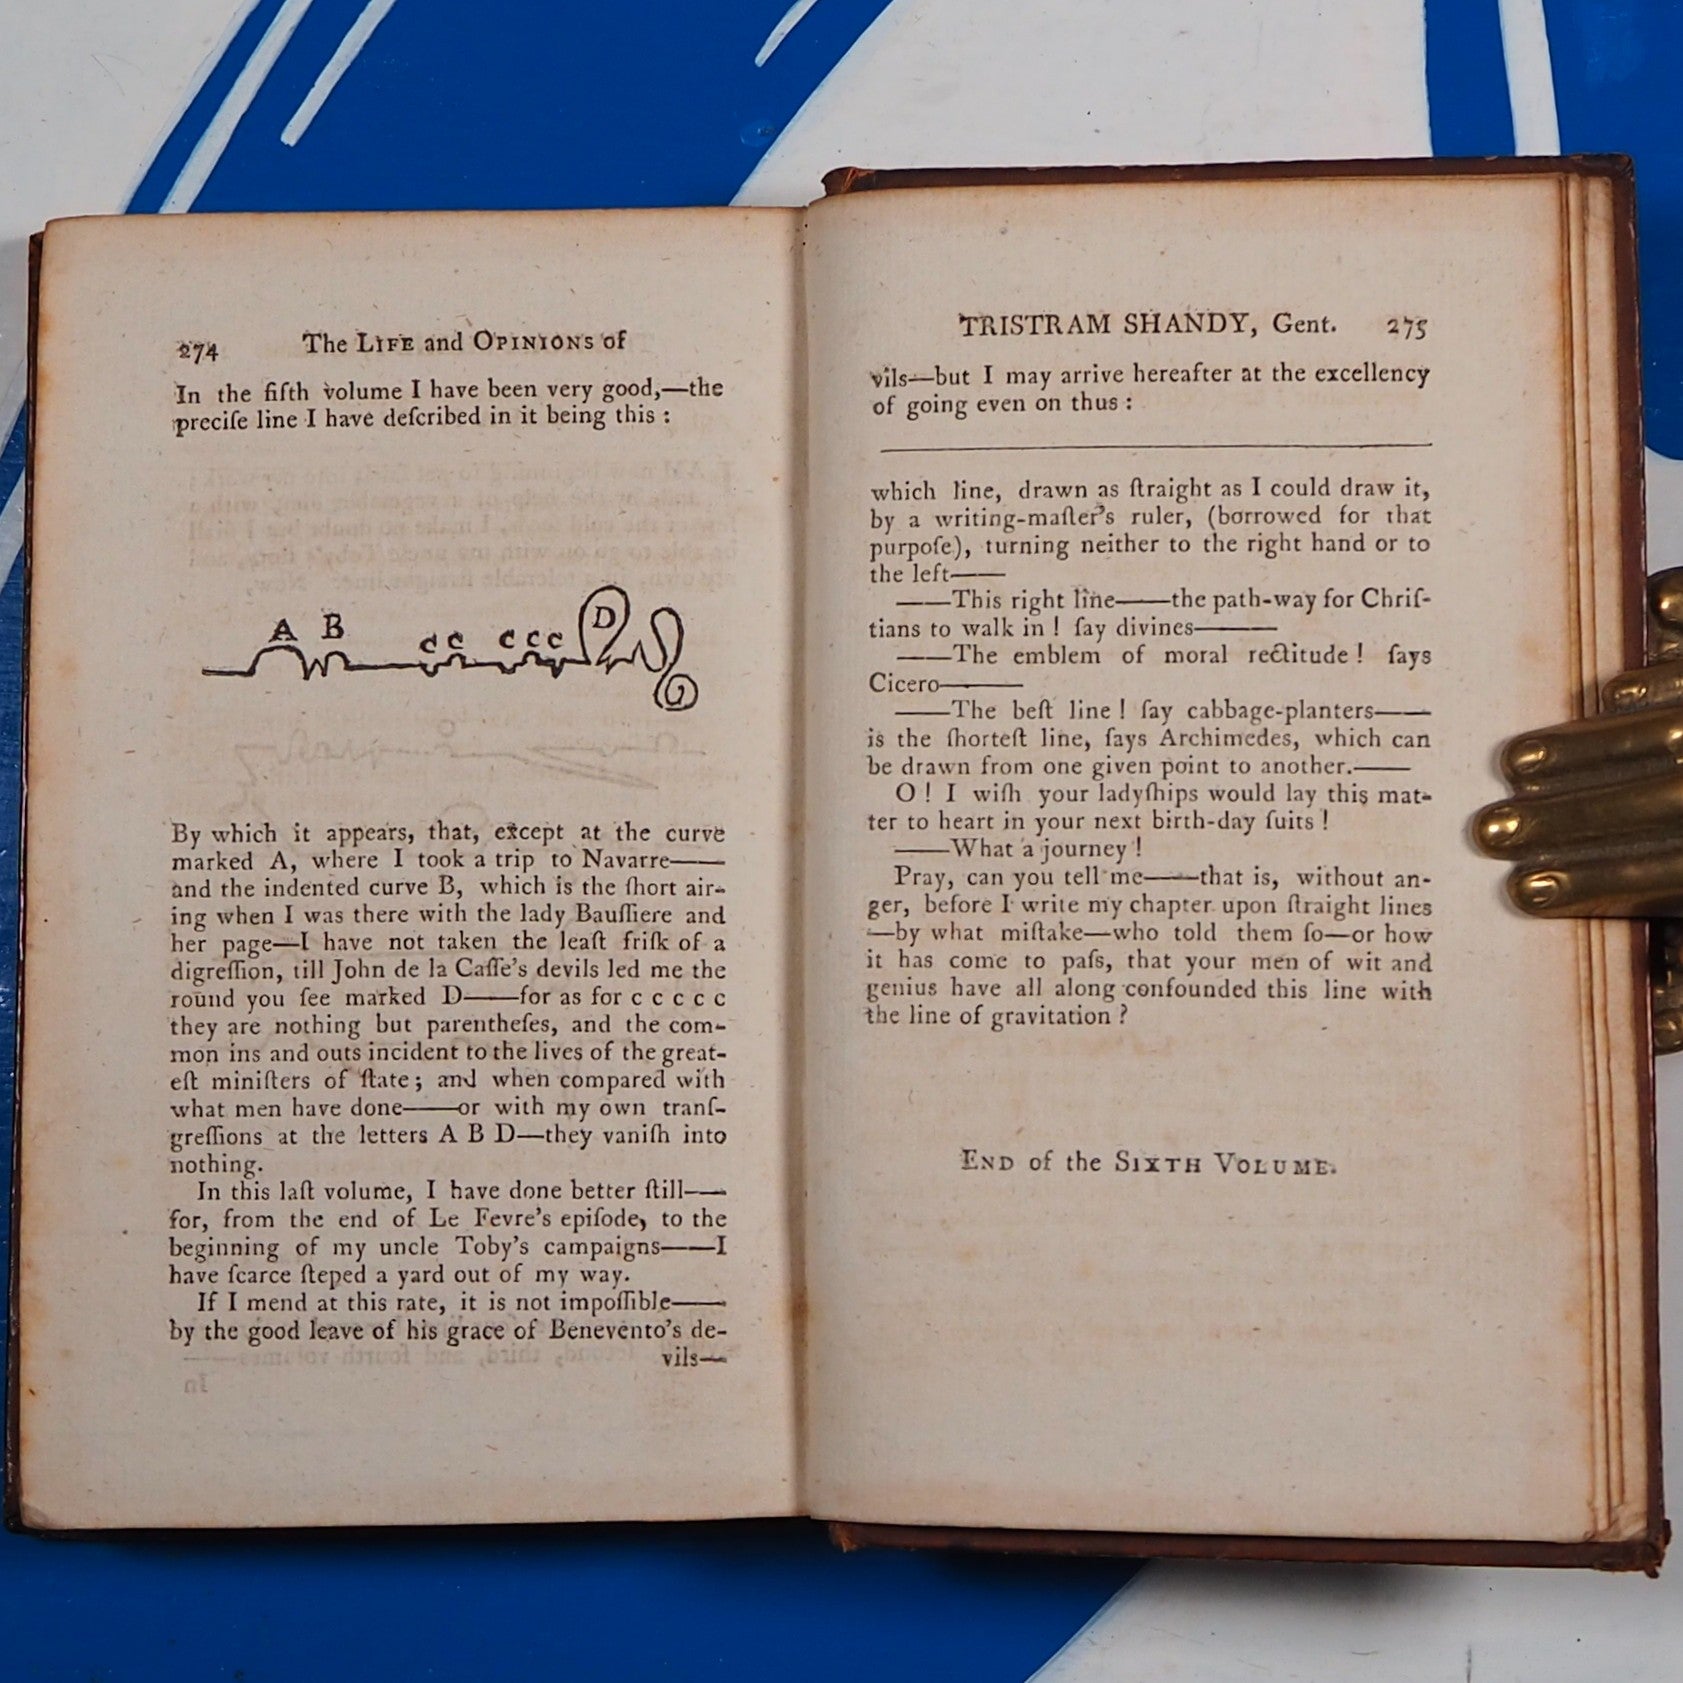 274 The LIFE and OPINIONS of
In the fifth volume I have been very good,—the
preciſe line I have deſcribed in it being this :
A B c c c c c D
By which it appears, that, except at the curve
marked A, where I took a trip to Navarre——
and the indented curve B, which is the ſhort air-
ing when I was there with the lady Bauſſiere and
her page—I have not taken the leaſt friſk of a
digreſſion, till John de la Caſſe's devils led me the
round you ſee marked D——for as for c c c c c
they are nothing but parentheſes, and the com-
mon ins and outs incident to the lives of the great-
eſt miniſters of ſtate; and when compared with
what men have done——or with my own tranſ-
greſſions at the letters A B D—they vaniſh into
nothing.
In this laſt volume, I have done better ſtill——
for, from the end of Le Fevre's epiſode, to the
beginning of my uncle Toby's campaigns——I
have ſcarce ſteped a yard out of my way.
If I mend at this rate, it is not impoſſible——
by the good leave of his grace of Benevento's de-
vils—
TRISTRAM SHANDY, Gent. 275
vils—but I may arrive hereafter at the excellency
of going even on thus :
which line, drawn as ſtraight as I could draw it,
by a writing-maſter's ruler, (borrowed for that
purpoſe), turning neither to the right hand or to
the left——
——This right line——the path-way for Chriſ-
tians to walk in ! ſay divines———
——The emblem of moral rectitude ! ſays
Cicero———
——The beſt line ! ſay cabbage-planters——
is the ſhorteſt line, ſays Archimedes, which can
be drawn from one given point to another.——
O ! I wiſh your ladyſhips would lay this mat-
ter to heart in your next birth-day ſuits !
——What a journey !
Pray, can you tell me——that is, without an-
ger, before I write my chapter upon ſtraight lines
—by what miſtake—who told them ſo—or how
it has come to paſs, that your men of wit and
genius have all along confounded this line with
the line of gravitation ?
END of the SIXTH VOLUME.